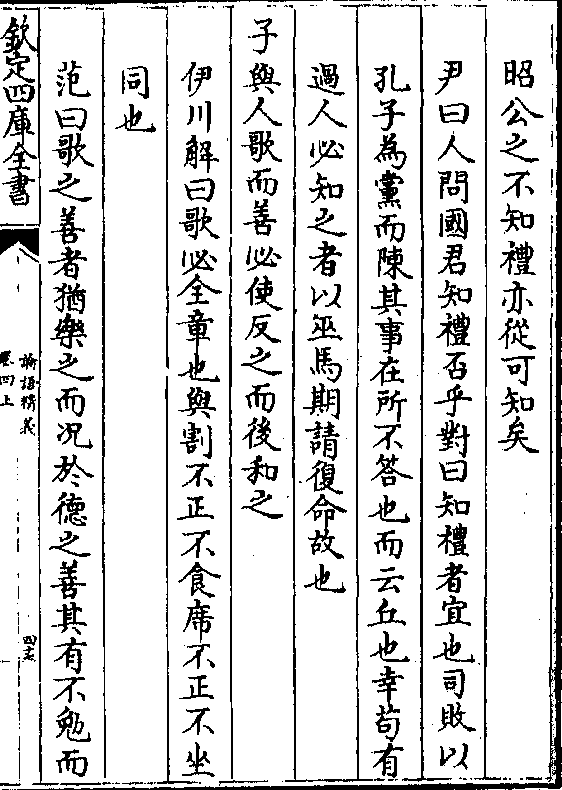 昭公之不知禮亦從可知矣
尹曰人問國君知禮否乎對曰知禮者宜也司敗以
孔子為黨而陳其事在所不答也而云丘也幸茍有
過人必知之者以巫馬期請復命故也
子與人歌而善必使反之而後和之
伊川解曰歌必全章也與割不正不食席不正不坐
同也
范曰歌之善者猶樂之而况於德之善其有不勉而
欽定四庫全書
論語精義
卷四上